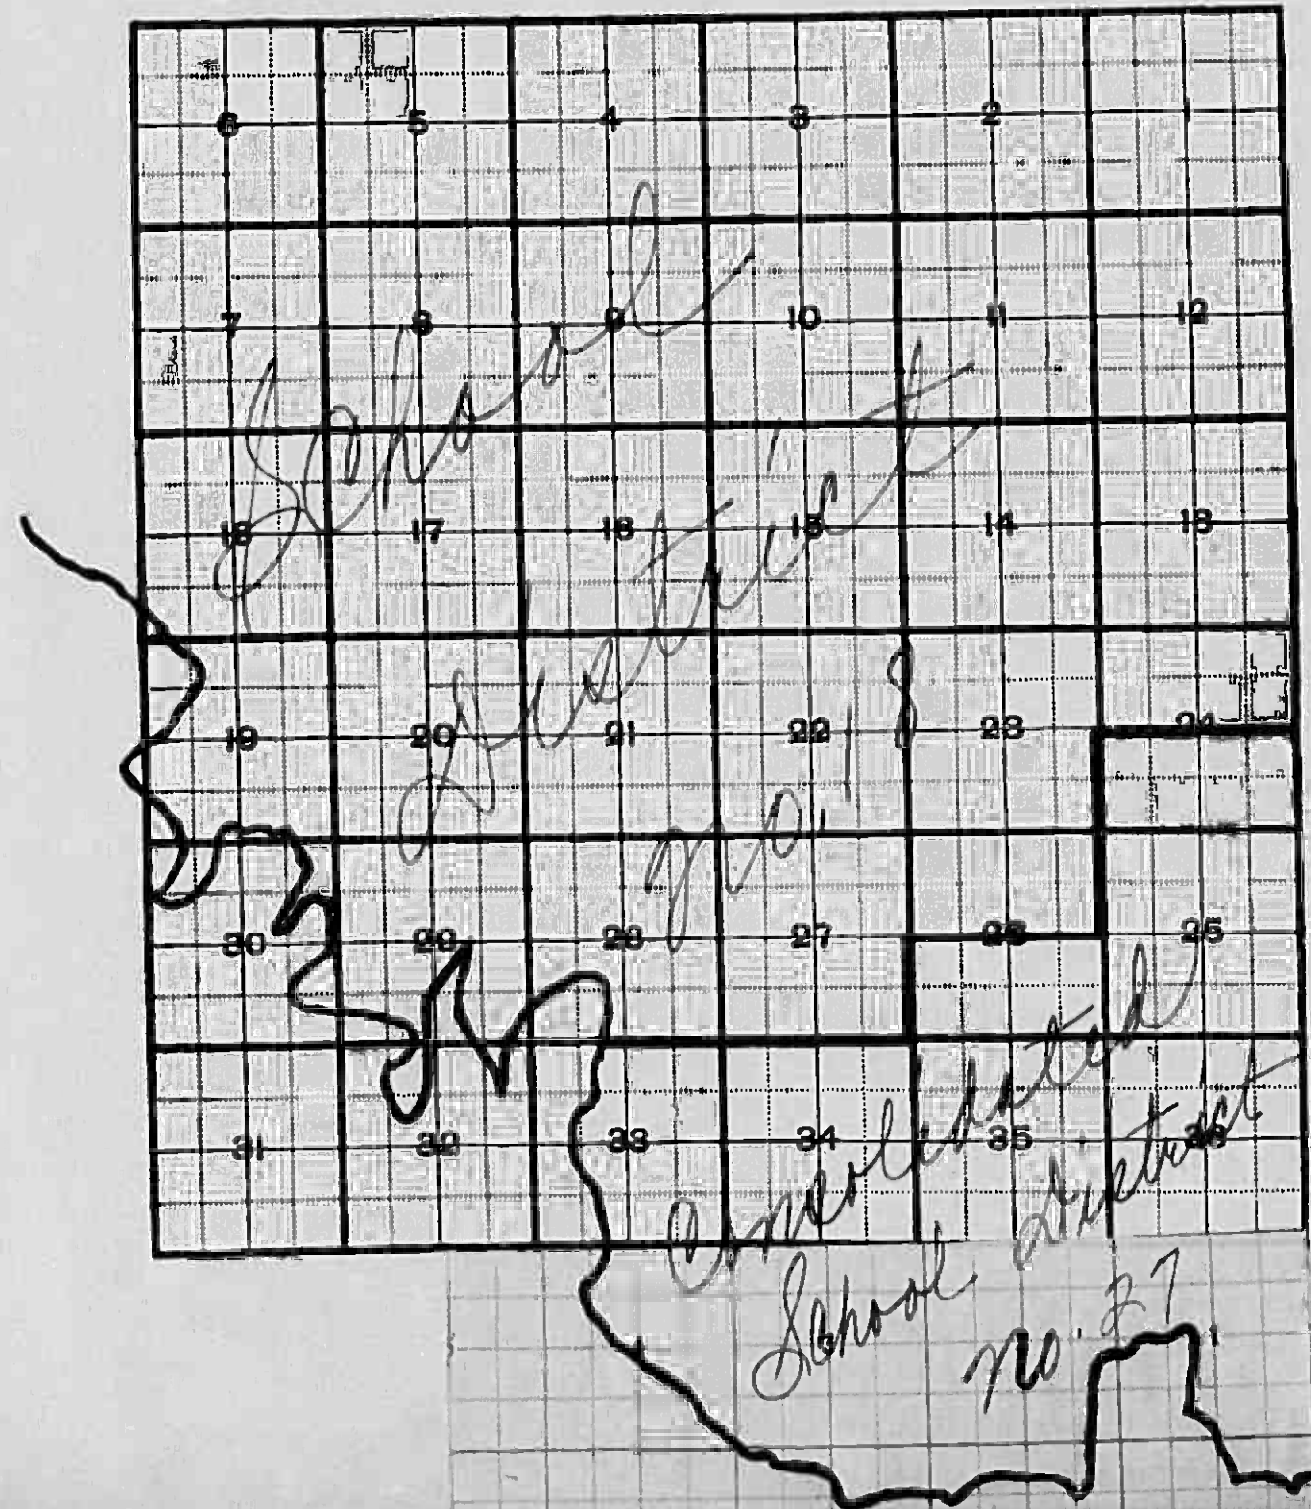 6 5 4 3 2 1
7 8 9 10 11 12
18 17 16 15 14 13
19 20 21 22 23 24
30 29 28 27 26 25
31 32 33 34 35 36
School
District
no. 18
Consolidated
School District
no. 27
3 1